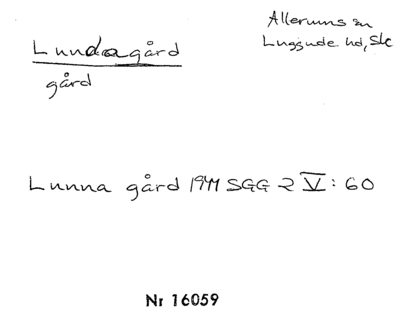 Lundagård
Allerums sn
Luggude hd, Sk
gård
Lunna gård 1941 SGG 2 V: 60
Nr 16059